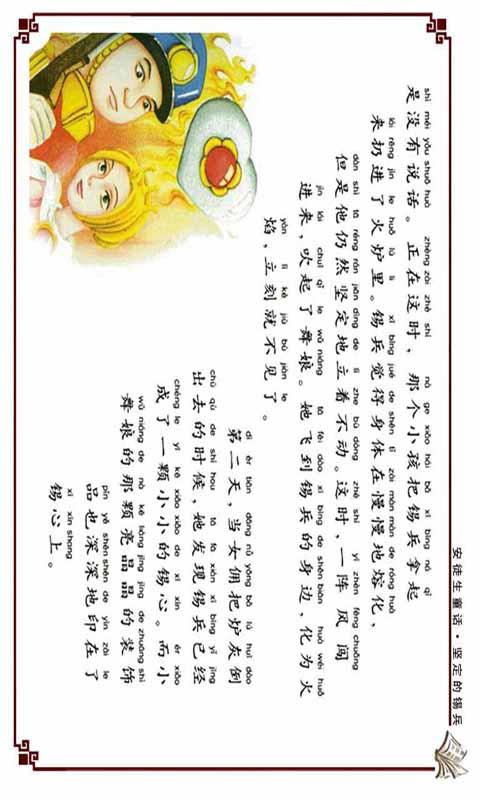 shì méi yǒu shuō huà zhèng zài zhè shí nà ge xiǎo hái bǎ xī bīng ná qǐ
是没有说话。正在这时，那个小孩把锡兵拿起
lái rēng jìn le huǒ lú lǐ xī bīng jué de shēn tǐ zài màn màn de róng huà
来扔进了火炉里。锡兵觉得身体在慢慢地熔化、
dàn shì tā réng rán jiān dìng de lì zhe bù dòng zhè shí yí zhèn fēng chuǎng
但是他仍然坚定地立着不动。这时，一阵风闯
jìn lái chuī qǐ le wǔ niáng tā fēi dào xī bīng de shēn biān huà wéi huǒ
进来，吹起了舞娘。她飞到锡兵的身边，化为火
yàn lì kè jiù bú jiàn le
焰，立刻就不见了。
dì èr tiān dāng nǚ yōng bǎ lú huī dào
第二天，当女佣把炉灰倒
chū qù de shí hou tā fā xiàn xī bīng yǐ jīng
出去的时候，她发现锡兵已经
chéng le yì kē xiǎo xiǎo de xī xīn ér xiǎo
成了一颗小小的锡心。而小
wǔ niáng de nà kē liàng jīng jīng de zhuāng shì
舞娘的那颗亮晶晶的装饰
pǐn yě shēn shēn de yìn zài le
品也深深地印在了
xī xīn shang
锡心上。
安徒生童话·坚定的锡兵